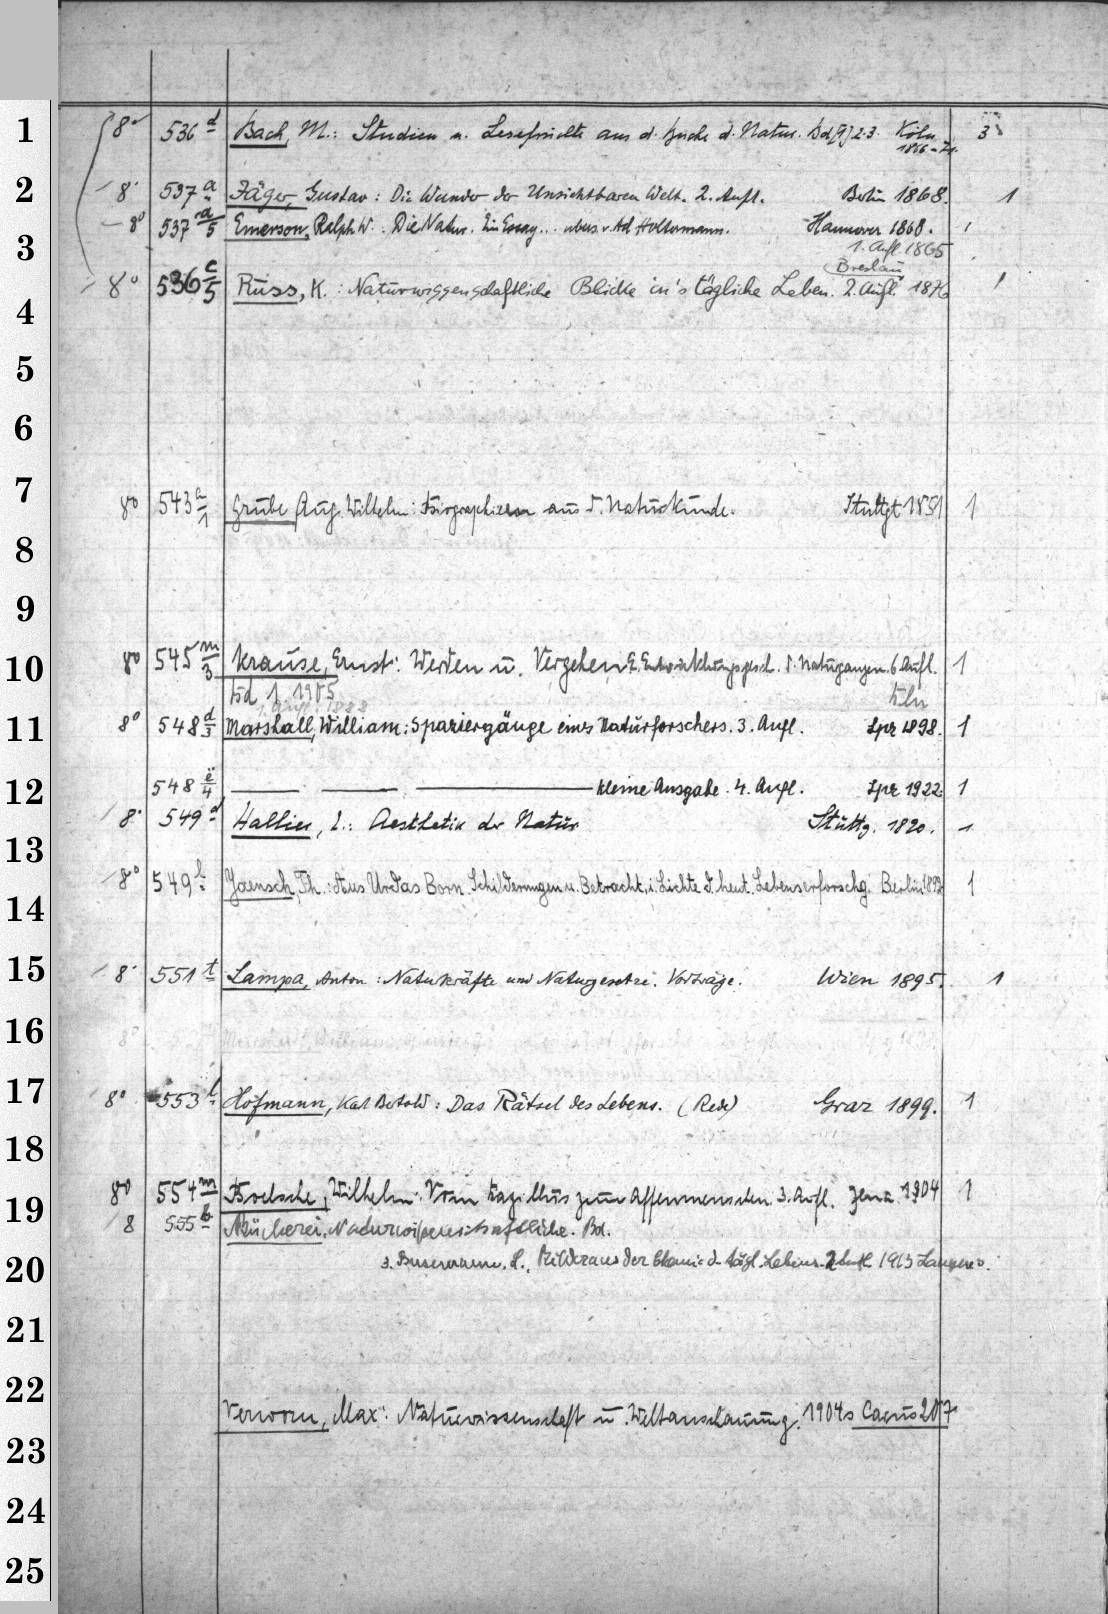 1
8° 536 d Bach, M.: Studien u. Lesefrüchte aus d. Buche d. Natur. Bd [1] 2.3. Köln 3
1866-71.
2
8° 537 a Jäger, Gustav: Die Wunder der Unsichtbaren Welt. 2. Aufl. Berlin 1868. 1
8° 537 a/5 Emerson, Ralph W.: Die Natur. Ein Essay... übers. v. Ad Holtermann. Hannover 1868. 1
3
1. Aufl 1865
Breslau
8° 536 c/5 Russ, K.: Naturwissenschaftliche Blicke in's tägliche Leben. 2. Aufl. 1876 1
4
5
6
7
8° 543 a/1 Grube Aug. Wilhelm: Biographieen aus d. Naturkunde. Stuttgt 1851 1
8
9
10
8° 545 m/3 Krause, Ernst: Werden u. Vergehen E. Entwicklungsgesch. d. Naturganzen. 6 Aufl. 1
Bd 1 1905
Bln
11
8° 548 d/3 Marshall, William: Spaziergänge eines Naturforschers. 3. Aufl. Lpz 1898. 1
12
548 e/4 — — — kleine Ausgabe. 4. Aufl. Lpz 1922 1
8° 549 a Hallier, E.: Aesthetik der Natur Stuttg. 1890. 1
13
8° 549 b Jaensch, Th.: Aus Urdas Born. Schilderungen u. Betracht. i. Lichte d. heut. Lebenserforschg. Berlin 1
14
15
8° 551 t Lampa, Anton: Naturkräfte und Naturgesetze. Vorträge. Wien 1895. 1
16
17
8° 553 l Hofmann, Karl Bertold: Das Rätsel des Lebens. (Rede) Graz 1899. 1
18
8° 554 m Boelsche, Wilhelm: Vom Bazillus zum Affenmenschen. 3. Aufl. Jena 1904 1
19
8 555 b Bücherei, Naturwissenschaftliche. Bd.
20
3. L., Bilder aus der Chemie d. tägl. Lebens. 2. Aufl. 1913
21
22
Verworn, Max: Naturwissenschaft u. Weltanschauung. 1904 s Caeus 207
23
24
25